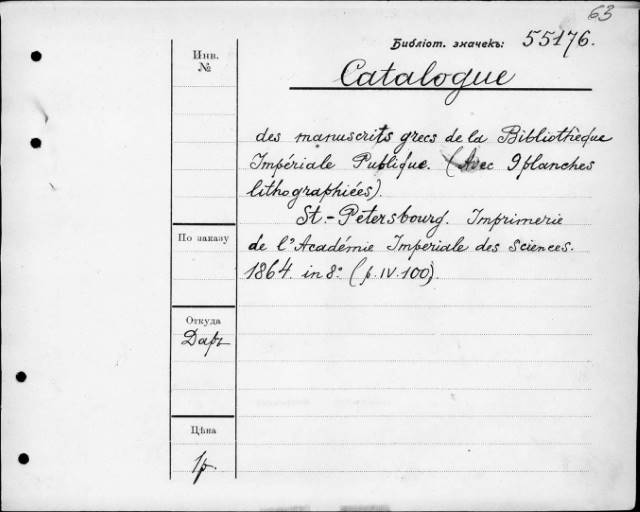 63
Библіот. значекъ: 55176.
Инв.
№
Catalogue
des manuscrits grecs de la Bibliothèque
Impériale Publique. (Avec 9 planches
lithographiées).
St.-Petersbourg. Imprimerie
По заказу
de l'Académie Imperiale des Sciences.
1864. in 8° (p. IV. 100).
Откуда
Даръ
Цѣна
1р.